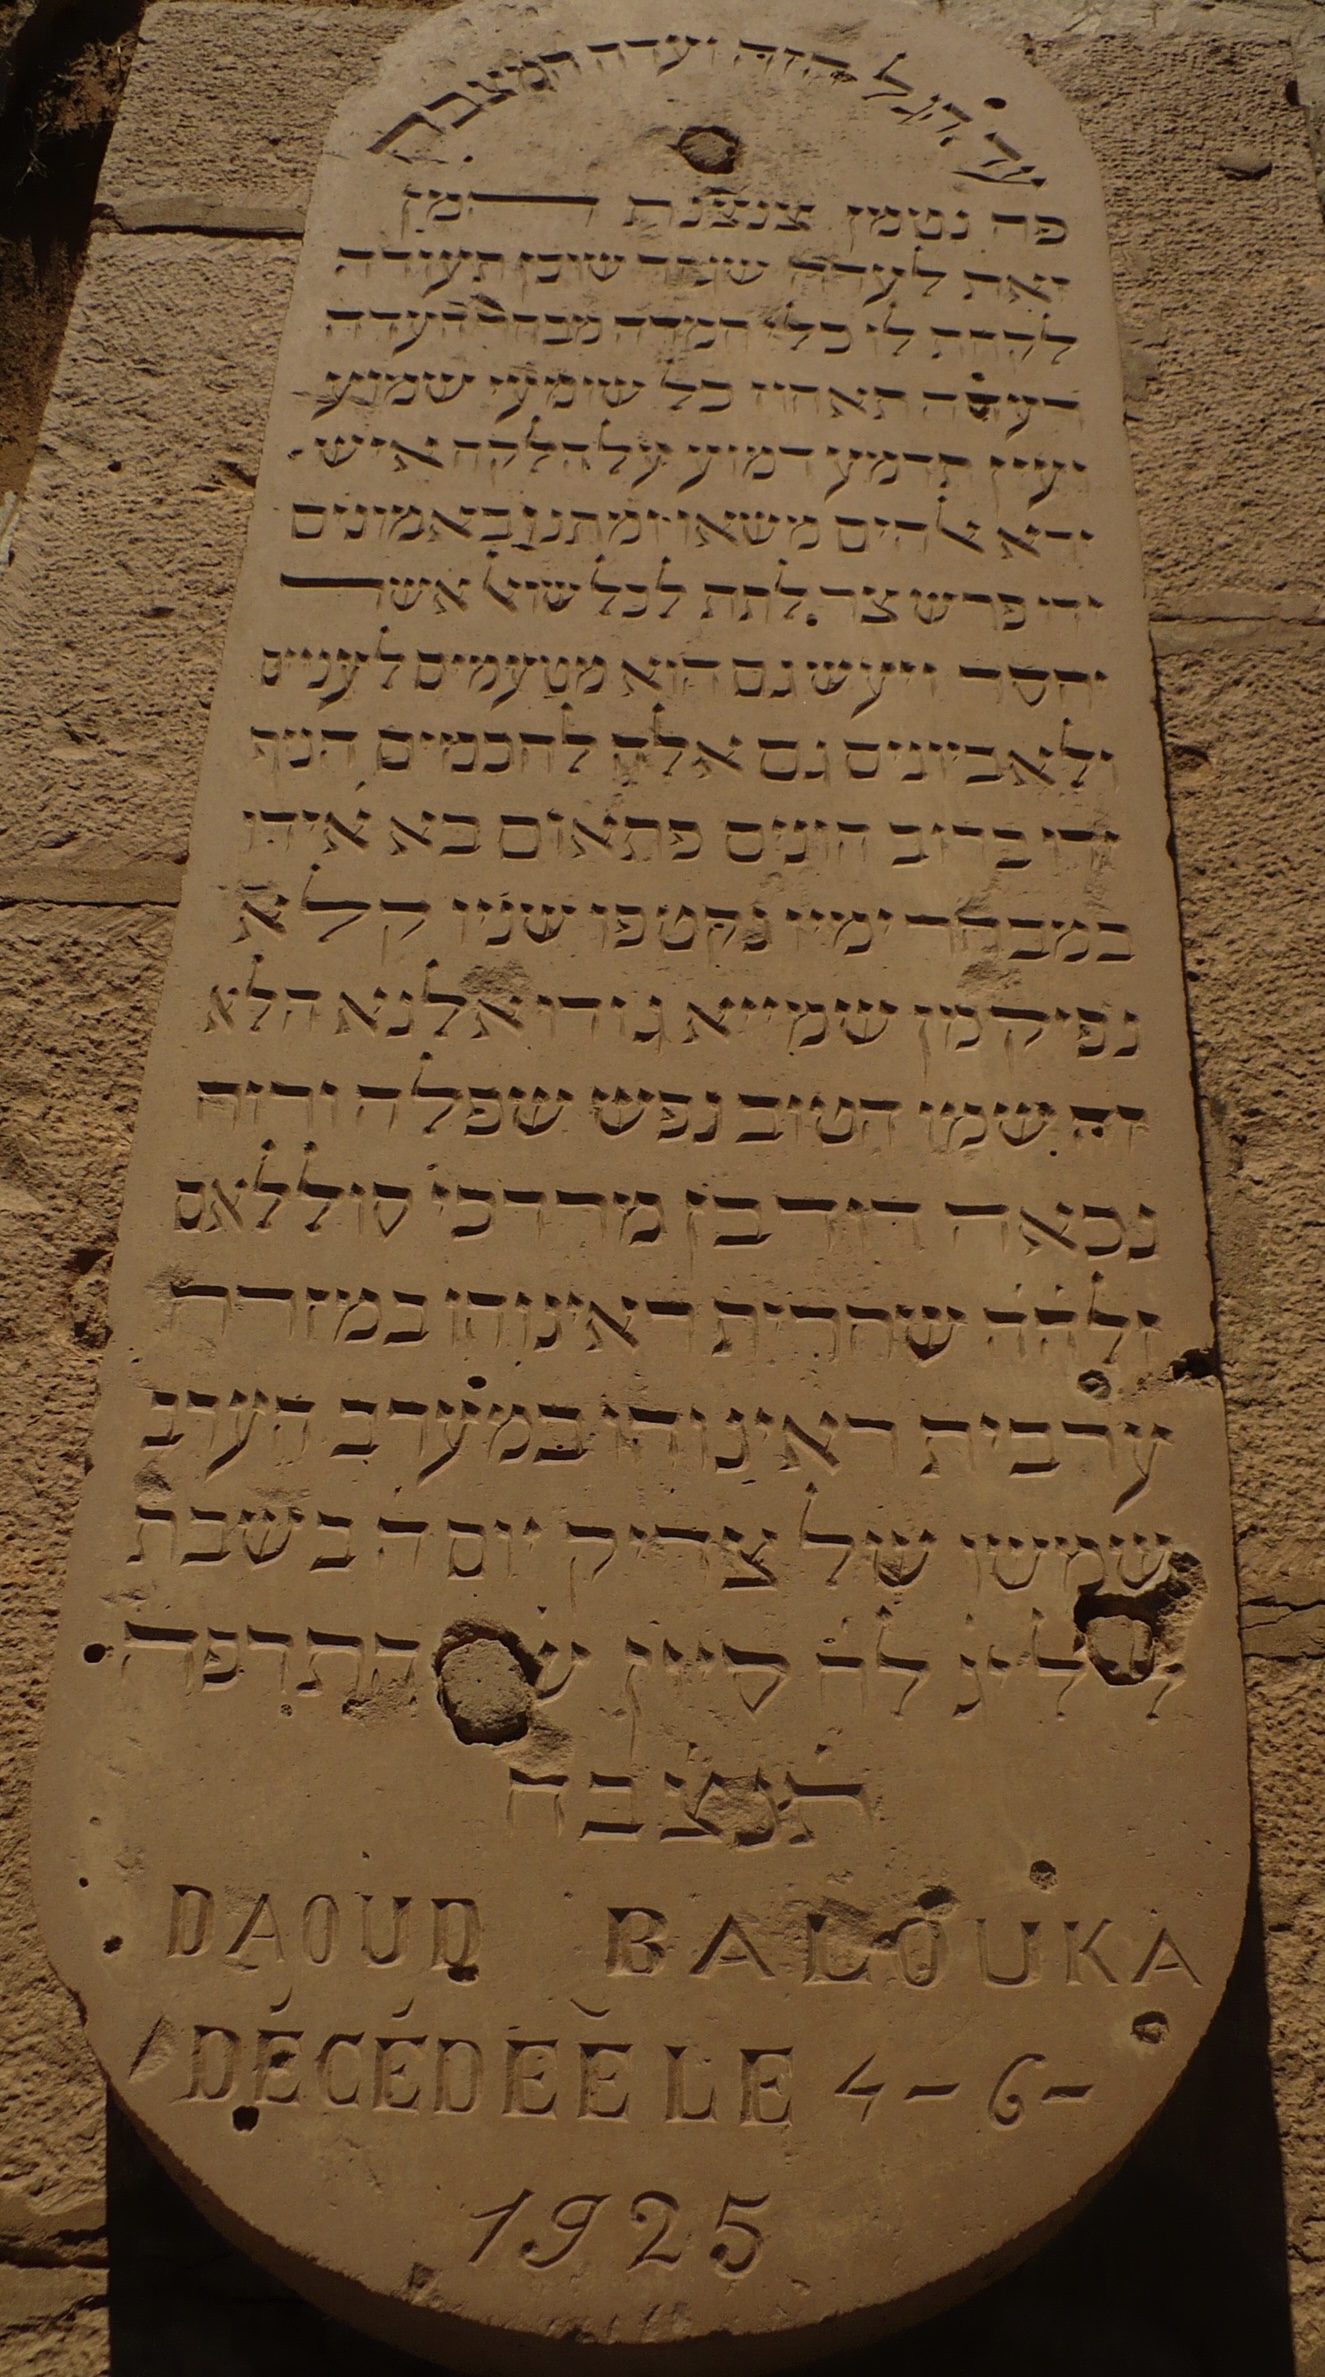 עד הגל הזה ועדה המצבה
פה נטמן צנצנת המן
זאת לעדה שגור שוכן תעודה
לקחת לו כלי חמדה מבחר העדה
רעדה תאחוז כל שומעי שמוע
ועין תדמע דמוע על הלקח איש
ירא אלהים משאו ומתנו באמונים
ידו פרש צר לתת לכל שואל אשר
יחסר ויעש גם הוא מטעמים לעניים
ולאביונים גם אלה לחכמים הניף
ידו ברוב הונים פתאום בא אידו
במבחר ימיו נקטפו שניו קלא
נפיק מן שמייא גודו אלנא הלא
זה שמו הטוב נפש שפלה ורוח
נכאה דוד בן מרדכי סוללאם
זלהה שחרית ראינוהו במזרח
ערבית ראינוהו במערב העריב
שמשו של צדיק יום ה בשבת
יג לח סיון התרפה
תנצבה
DAOUD BALOUKA
DÉCÉDÉE LE 4-6-
1925